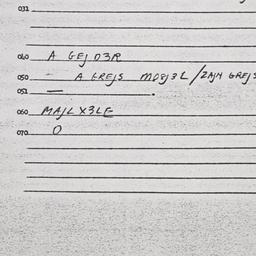 032
040 A GEJ D3R
050 A GREJS MDEJ3L/ZAJN GREJS
052 —.
060 MAJL X3LE
070 O